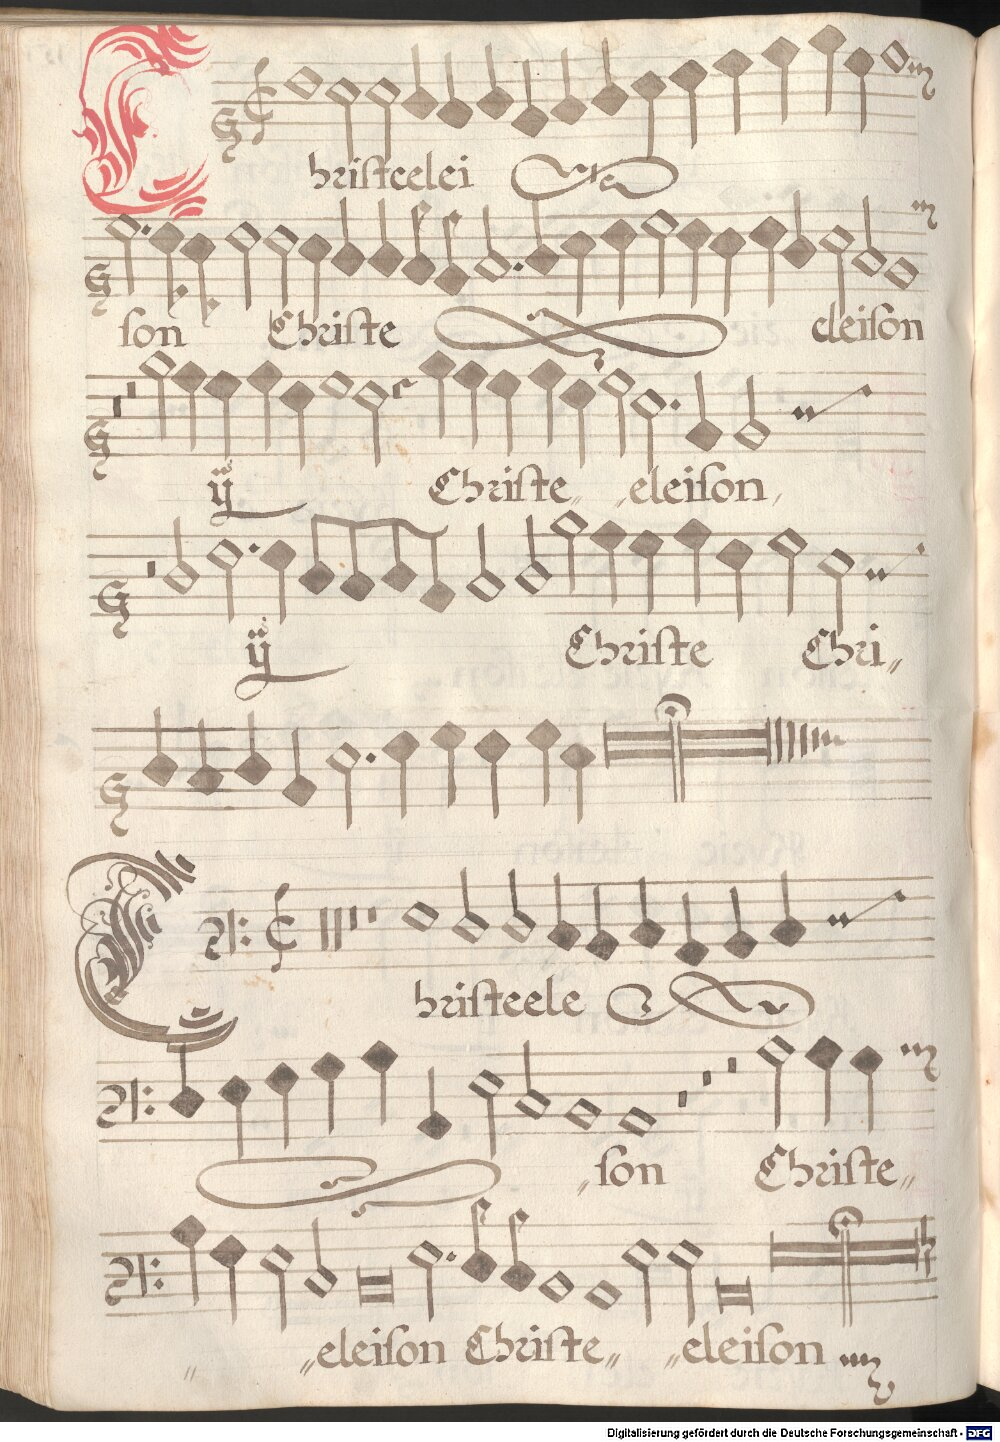 Christeelei
son Christe eleison
ÿ Christe eleison
ÿ Christe Chri
Christeele
son Christe
eleison Christe eleison
Digitalisierung gefördert durch die Deutsche Forschungsgemeinschaft - DFG